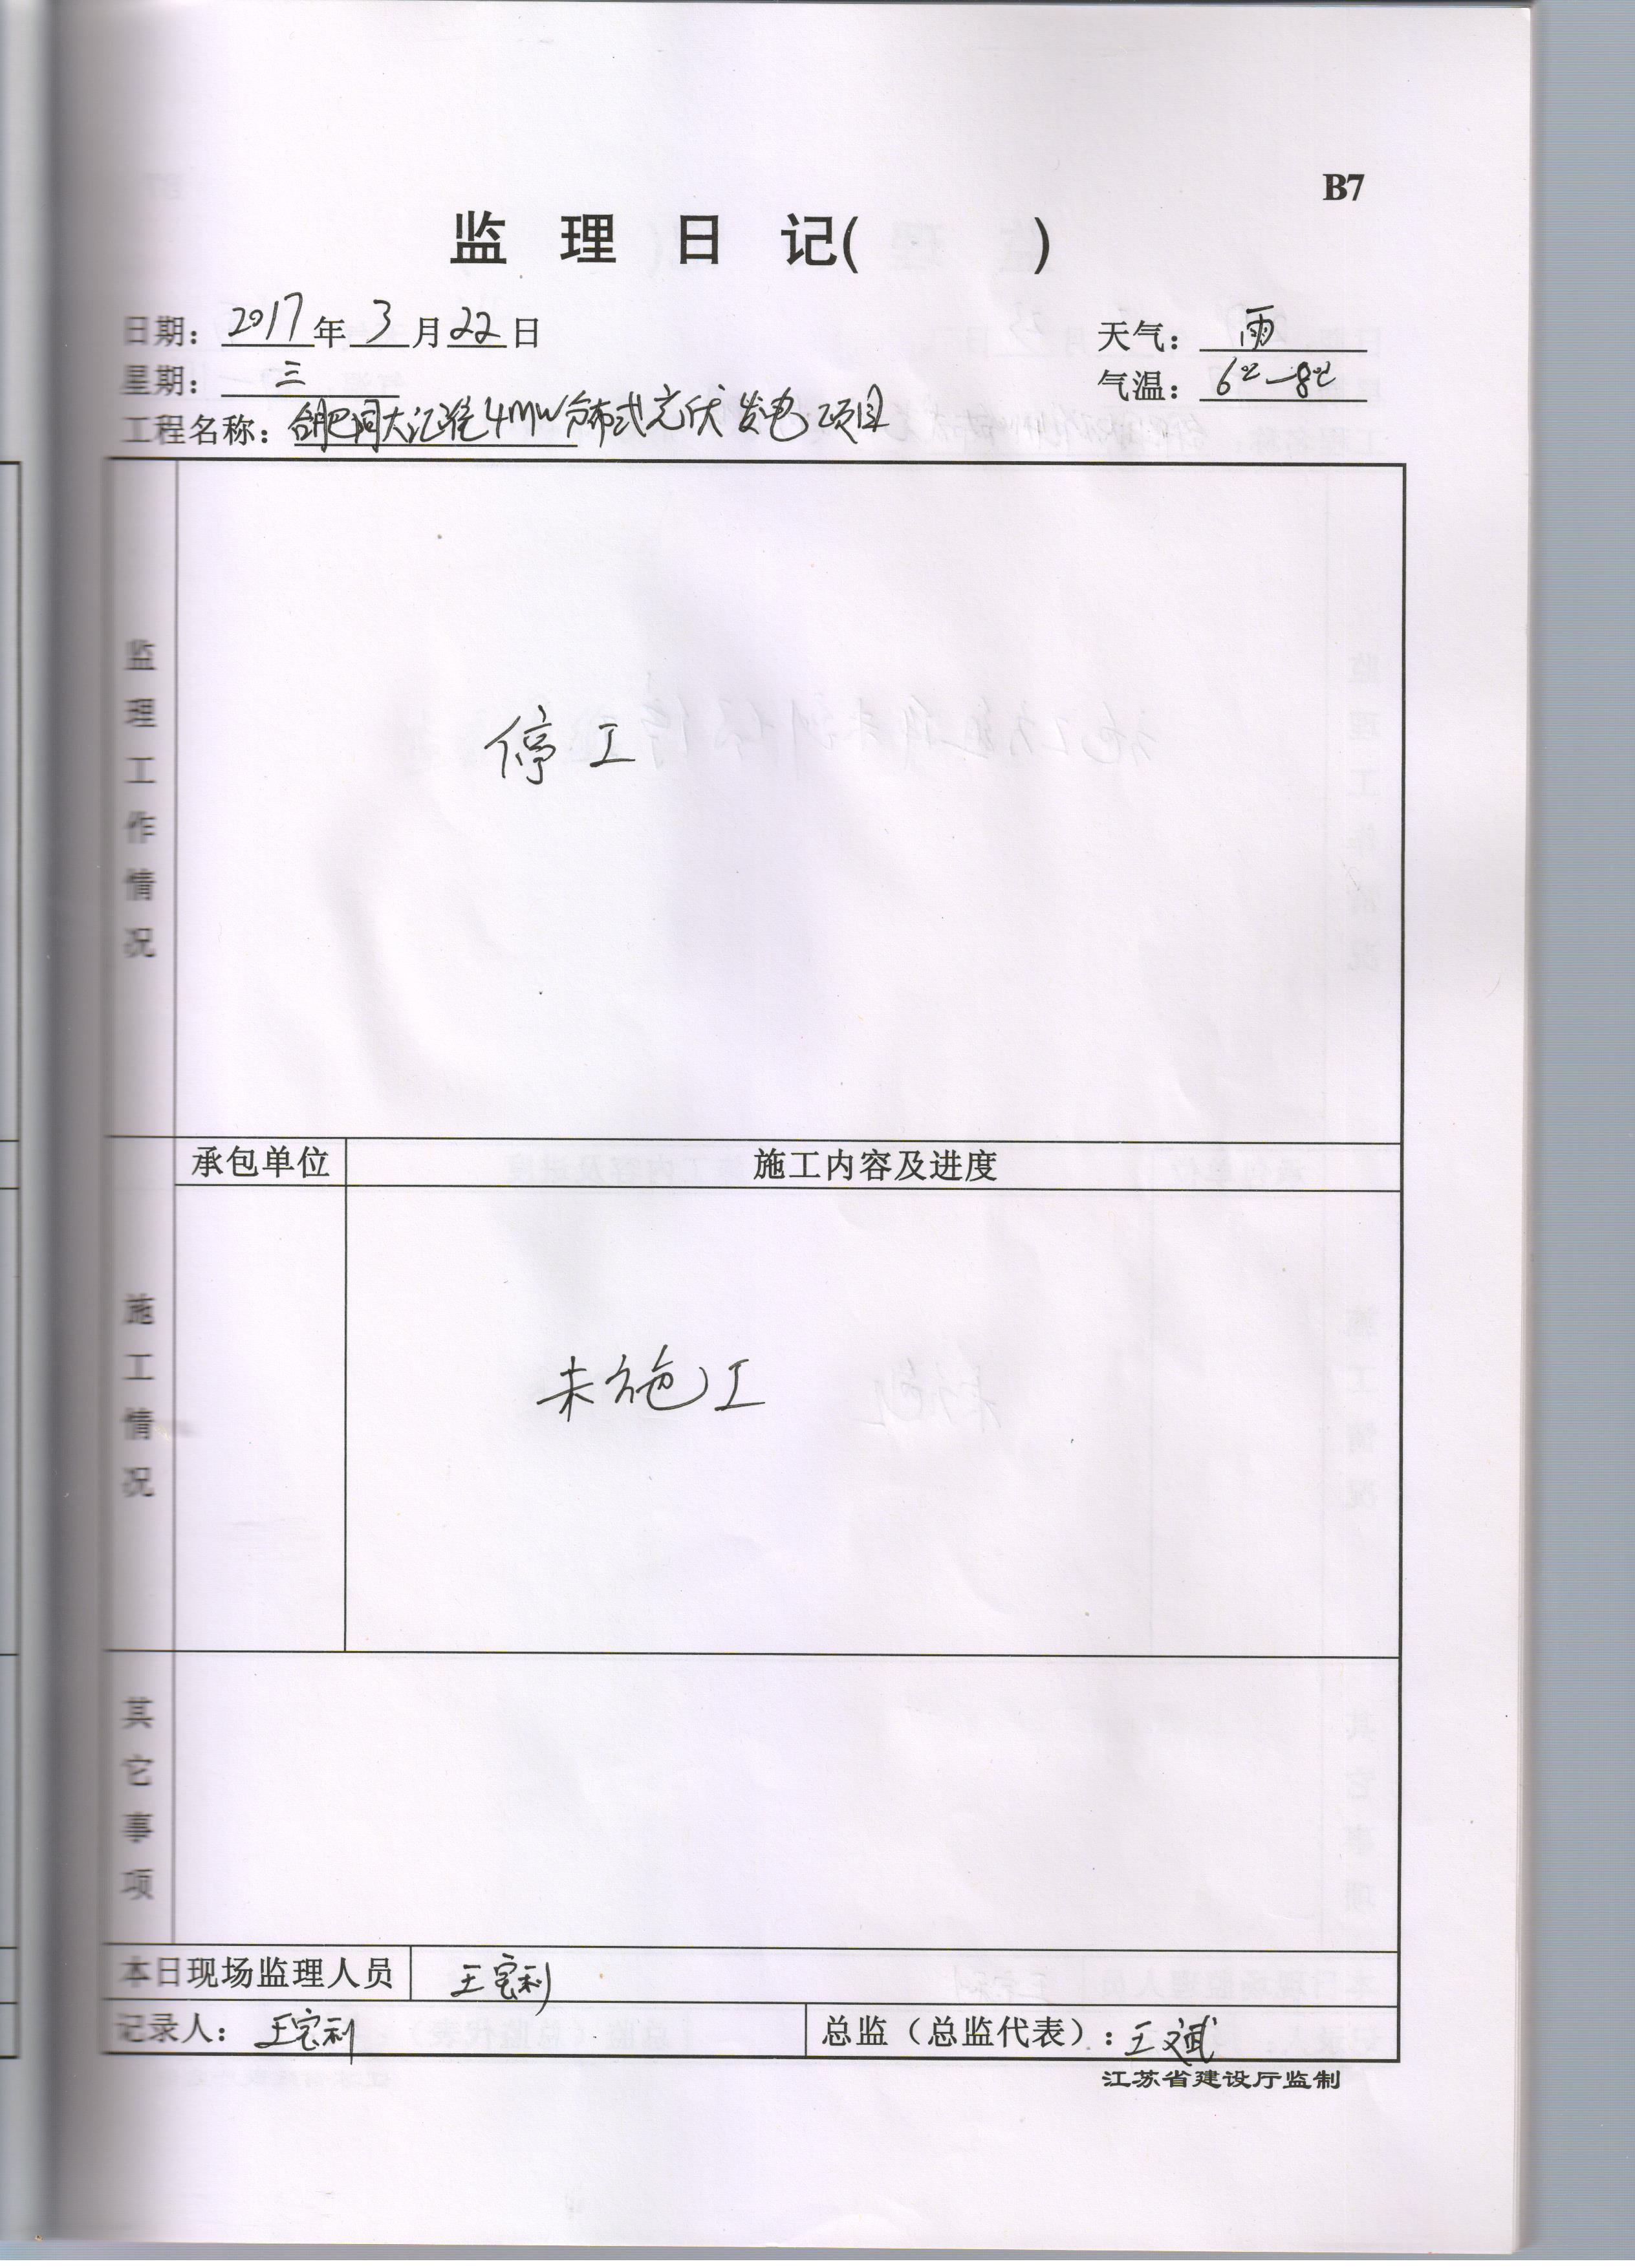 B7
监 理 日 记( )
日期: 2017 年 3 月 22 日 天气: 雨
星期: 三 气温: 6℃—8℃
工程名称: 合肥同大江淮4MW分布式光伏发电项目
监理工作情况
停工
承包单位 施工内容及进度
施工情况
未施工
其它事项
本日现场监理人员 王宝利
记录人: 王宝利 总监（总监代表）: 王斌
江苏省建设厅监制